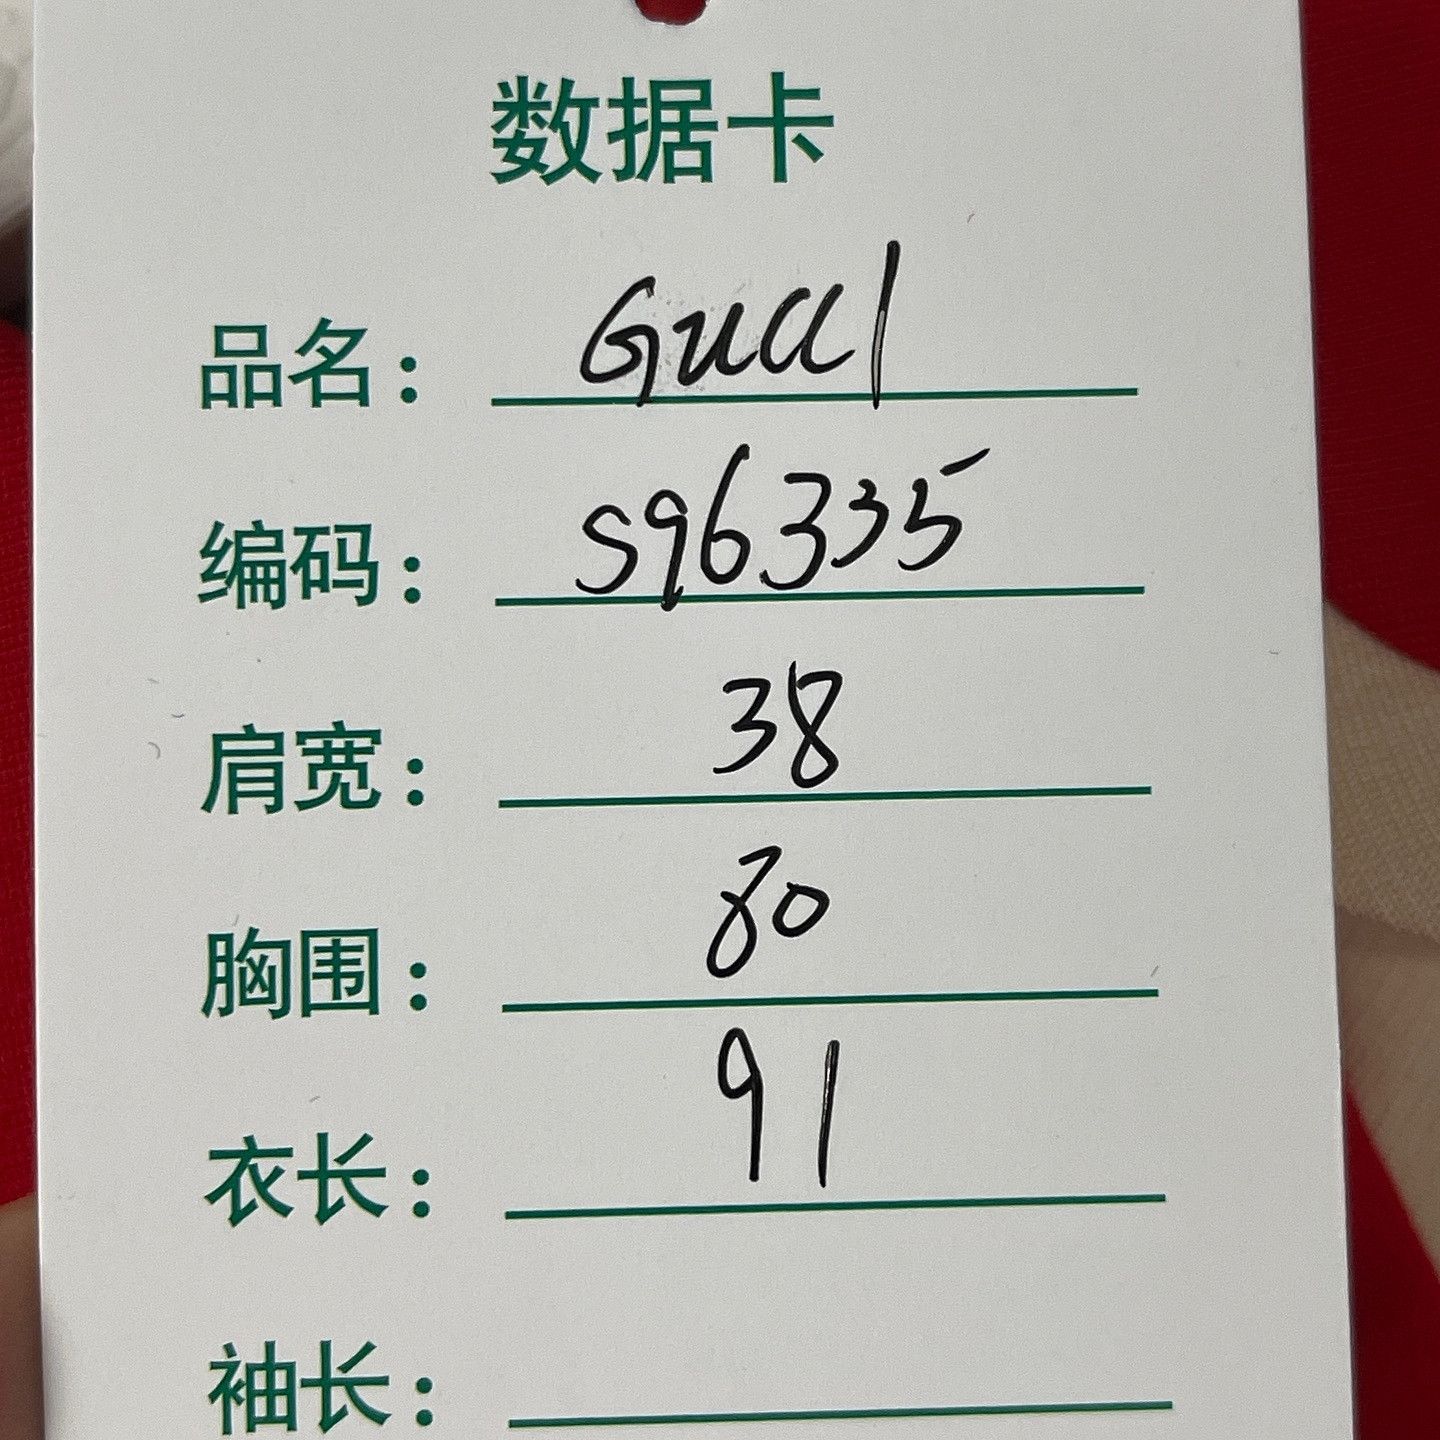 数据卡
品名： Gucci
编码： S96335
肩宽： 38
胸围： 80
衣长： 91
袖长：